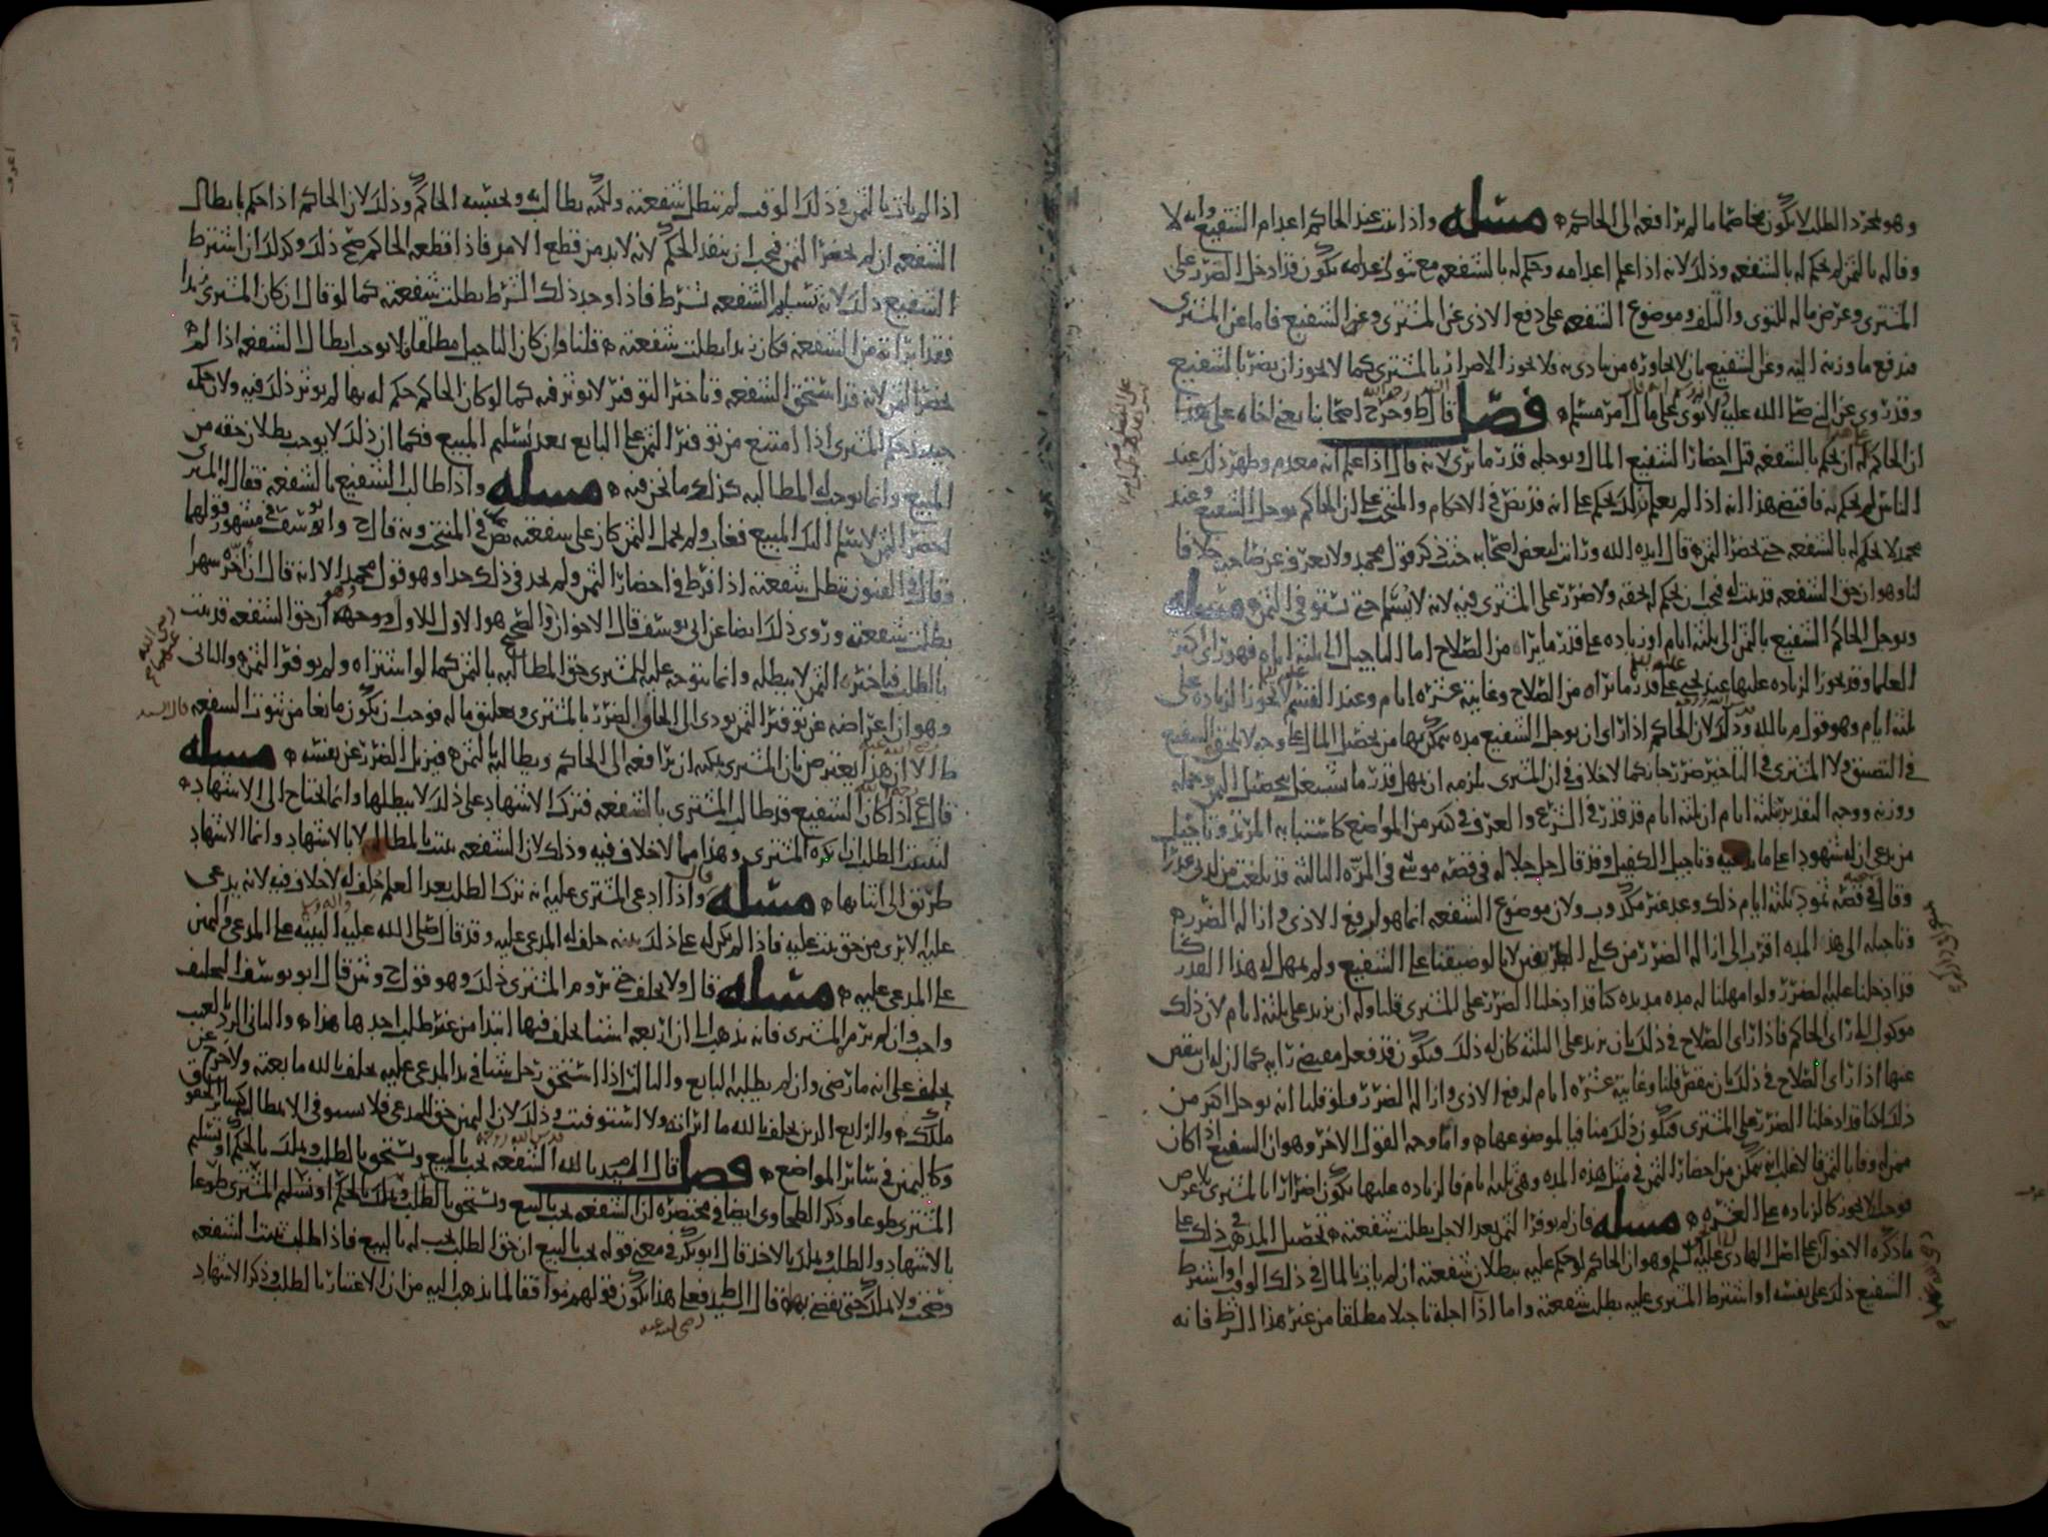 وهو مجرد الطلب لا يكون مخاصما ما لم يرافعه الى الحاكم ه مسله واذا ثبت عند الحاكم اعدام الشفيع وانه لا
وفا له بالثمن لم يحكم له بالشفعه وذلك لانه اذا علم اعدامه وحكم له بالشفعه مع ثبوت اعدامه يكون قد ادخل الضرر على
المشترى وعرض ماله للتوى والتلف وموضوع الشفعه على دفع الاذى عن المشترى وعن الشفيع فاما عن المشترى
فدفع ما وزنه اليه وعن الشفيع بان لا يجاوره من يتاذى به فلا يجوز الاضرار بالمشترى كما لا يجوز ان يضر بالشفيع
وقد روى عن النبى صلى الله عليه لا توى على مال امرء مسلم ه فصل قال ط وخرج اصحابنا يعنى اخاه على هذا
ان الحاكم له ان يحكم بالشفعه قبل احضار الشفيع المال ويوجله قدر ما يرى لانه قال اذا علم انه معدم وظهر ذلك عند
الناس لم يحكم به فاقتضى هذا انه اذا لم يعلم ذلك يحكم على انه قد نص فى الاحكام والمنتخب على ان الحاكم يوجل الشفيع وعند
محمد لا يحكم له بالشفعه حتى يحضر الثمن قال ايده الله ورايت لبعض اصحابه حيث ذكر قول محمد ولا نعرف عن صاحبه خلافا
لنا وهو ان حق الشفعه قد ثبت له فيجب ان يحكم له بحقه ولا ضرر على المشترى فيه لانه لا يسلم حتى يستوفى الثمن ه مسله
ويوجل الحاكم الشفيع بالثمن الى ثلثه ايام او زياده على قدر ما يراه من الصلاح اما التاجيل الى ثلثه ايام فهو راى اكثر
العلما وقد يجوز الزياده عليها عند يحيى على قدر ما يراه من الصلاح وغايته عشره ايام وعند القسم لا يجوز الزياده على
ثلثه ايام وهو قول م بالله وذلك لان الحاكم اذا راى ان يوجل الشفيع مده يتمكن بها من تحصيل المال على وجه لا يلحق الشفيع
فى التضييق ولا المشترى فى التاخير ضرر جاز كما لا خلاف فى ان المشترى يلزمه ان يمهل قدر ما يشتغل بتحصيل الثمن وحمله
ووزنه ووجه التقدير بثلثه ايام ان ثلثه ايام قد قدر فى الشرع والعرف فى كثير من المواضع كاستتابه المرتد وتاجيل
من يدعى ان له شهودا على ما يدعيه وتاجيل الكفيل وقد قال جل جلاله فى قصه موسى فى المره الثالثه قد بلغت من لدنى عذرا
وقال فى قصه ثمود ثلثه ايام ذلك وعد غير مكذوب ولان موضوع الشفعه انما هو لدفع الاذى وازاله الضرر ه
وتاجيله الى هذه المده اقرب الى ازاله الضرر من كلى الطرفين لانا لو ضيقنا على الشفيع ولم يمهل له هذا القدر كنا
قد ادخلنا عليه الضرر ولو امهلنا له مده مديده كنا قد ادخلنا الضرر على المشترى قلنا وله ان يزيد على ثلثه ايام لان ذلك
موكول الى راى الحاكم فاذا راى الصلاح فى ذلك بان يزيد على الثلثه كان له ذلك فيكون قد فعل مقتضى رايه كما ان له ان ينقص
عنها اذا راى الصلاح فى ذلك بان ينقص قلنا وغايته عشره ايام لدفع الاذى وازاله الضرر فلو قلنا انه يوجل اكثر من
ذلك لكنا قد ادخلنا الضرر على المشترى فيكون ذلك منافيا لموضوعها ه واما وجه القول الاخر وهو ان الشفيع اذا كان
ممن له وفا بالثمن فالاغلب انه يتمكن من احضار الثمن فى مثل هذه المده وهى ثلثه ايام فالزياده عليها يكون اضرارا بالمشترى بلا عوض
فوجب ان لا يجوز كالزياده على العشره ه مسله فان لم يوفر الثمن بعد الاجل بطلت شفعته ه تحصيل المذهب فى ذلك على
ما ذكره الاخوان على اصل الهادى عليه السلم وهو ان الحاكم لو حكم عليه ببطلان شفعته ان لم يات بالمال فى ذلك الوقت او اشترط
الشفيع ذلك على نفسه او اشترط المشترى عليه بطلت شفعته واما اذا اجله تاجيلا مطلقا من غير هذا الشرط فانه
اذا لم يات بالثمن فى ذلك الوقت لم تبطل شفعته ولكنه يطالب به ويحبسه الحاكم وذلك لان الحاكم اذا حكم بابطال
الشفعه ان لم يحضر الثمن فيجب ان ينفذ الحكم لانه لا بد من قطع الامر فاذا قطعه الحاكم صح ذلك وكذلك ان اشترط
الشفيع ذلك لانه تسليم الشفعه بشرط فاذا وجد ذلك الشرط بطلت شفعته كما لو قال ان كان المشترى زيدا
فقد ابراته من الشفعه فكان زيدا بطلت شفعته ه قلنا وان كان التاجيل مطلقا فلا يوجب ابطال الشفعه اذا لم
يحضر الثمن لانه قد استحق الشفعه وتاخير التوفير لا يوثر فيه كما لو كان الحاكم حكم له بها لم يوثر ذلك فيه ولان حكمه
حينئذ حكم المشترى اذا امتنع من توفير الثمن على البايع بعد تسليم المبيع فكما ان ذلك لا يوجب بطلان حقه من
المبيع وانما يوجب له المطالبه كذلك ما نحن فيه ه مسله واذا طالب الشفيع بالشفعه فقال له المشترى
احضر الثمن لاسلم اليك المبيع فغاب ولم يحمل الثمن كان على شفعته نص عليه فى المنتخب وبه قال ح وابو يوسف فى مشهور قولهما
وقال فى الفنون تبطل شفعته اذا فرط فى احضار الثمن ولم يحد فى ذلك حدا وهو قول محمد الا انه قال ان اخره شهرا
بطلت شفعته وروى ذلك ايضا عن ابى يوسف قال الاخوان والصحيح هو الاول للاول ووجهه وهو ان حق الشفعه قد ثبت
بالطلب فتاخيره الثمن لا يبطله وانما يتوجه عليه للمشترى حق المطالبه بالثمن كما لو اشتراه ولم يوفر الثمن ه والثانى
وهو ان اعراضه عن توفير الثمن يودى الى الحاق الضرر بالمشترى وتعليق ماله فوجب ان يكون مانعا من ثبوت الشفعه قال السيد
ط الا ان هذا يعترض بان المشترى يمكنه ان يرافعه الى الحاكم ويطالبه بالثمن فيزيل الضرر عن نفسه ه مسله
قال ع اذا كان الشفيع قد طالب المشترى بالشفعه فترك الاشهاد على ذلك لا يبطلها وانما يحتاج الى الاشهاد ه
ليثبت الطلب ان نكره المشترى وهذا مما لا خلاف فيه وذلك لان الشفعه تثبت بالمطالبه لا بالاشهاد وانما الاشهاد
طريق الى اثباتها ه مسله قال واذا ادعى المشترى عليه انه ترك الطلب بعد العلم حلف له لا خلاف فيه لانه يدعى
عليه الابرى من حق يثبت عليه فاذا لم يكن له على ذلك بينه حلف له المدعى عليه وقد قال صلى الله عليه واله البينه على المدعى واليمين
على المدعى عليه ه مسله قال ولا يحلف حتى يروم المشترى ذلك وهو قول ح وش قال ابو يوسف التحليف
واجب وان لم يرم المشترى فانه يذهب الى ان اربعه اشيا يحلف فيها ابتدا من غير طلب احدها هذا ه والثانى الرد بالعيب
يحلف على انه ما رضى وان لم يطلبه البايع والثالث اذا استحق رجل شيئا فى يد المدعى عليه يحلف بالله ما بعته ولا خرج عن
ملكك ه والرابع الدين يحلف بالله ما ابراته ولا استوفيت وذلك لان اليمين حق للمدعى فلا يستوفى الا بمطالبته كساير الحقوق
وكاليمين فى ساير المواضع ه فصل قال المويد بالله الشفعه تجب بالبيع وتستحق بالطلب وتملك بالحكم او تسليم
المشترى طوعا وذكر الطحاوى ايضا فى مختصره ان الشفعه تجب بالبيع وتستحق بالطلب وتملك بالحكم او تسليم المشترى طوعا
بالاشهاد والطلب وتملك بالاخذ قال ابو بكر فى معنى قوله تجب بالبيع ان حق الطلب يجب له بالبيع فاذا طلب ثبتت الشفعه
وصحت ولا يملك حتى يقضى بها ه قال السيد ط فعلى هذا يكون قولهم موافقا لما يذهب اليه من ان الاعتبار بالطلب وذكر الاشهاد
رضى الله عنه